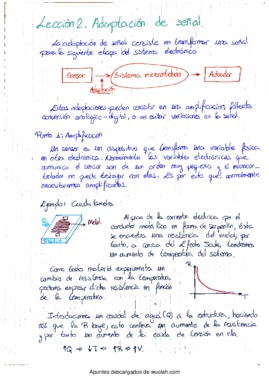 Lección 2. Adaptación de señal.
La adaptación de señal consiste en transformar una señal
para la siguiente etapa del sistema electrónico
Sensor
Sistema microcontrolado
Actuador
Adaptación
Estas adaptaciones pueden consistir en una amplificación, filtrado,
conversión analógico-digital, o en evitar variaciones en la señal.
Punto 1: Amplificación
Un sensor es un dispositivo que transforma una variable física
en otra electrónica. Normalmente las variables electrónicas que
comunica el sensor son de un orden muy pequeño y el microcon-
trolador no puede trabajar con ellas. Es por esto que normalmente
necesitaremos amplificarlas.
Ejemplo: Caudalímetro.
Metal.
Al paso de la corriente eléctrica por el
conductor metálico en forma de serpentín, ésta
se encuentra una resistencia del metal, por
tanto, a causa del Efecto Joule, tendremos
un aumento de temperatura del sistema.
Como todo material experimenta un
cambio de resistencia con la temperatura,
podremos expresar dicha resistencia en función
de la temperatura.
R
T
Introducimos un caudal de agua (Q) a la estructura, haciendo
así que la R baje; esto conlleva un aumento de la resistencia
y por tanto un aumento de la caída de tensión en ella.
↑Q → ↓T ⇒ ↑R ⇒ ↑V.
Apuntes descargados de wuolah.com